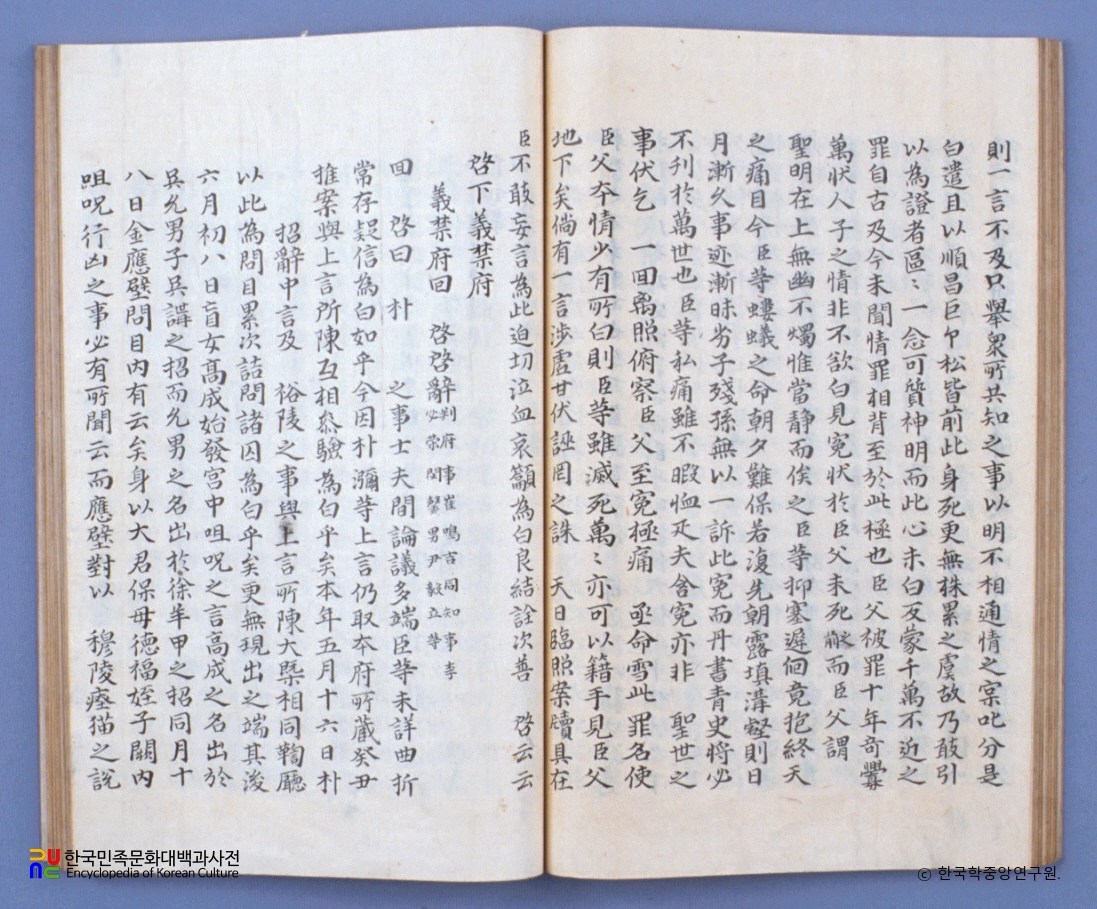 則一言不及只擧衆所共知之事以明不相通情之案叱分是
白遣且以順昌巨卩松皆前此身死更無株累之虞故乃敢引
以為證者區〻一念可質神明而此心未白反家千萬不近之
罪自古及今未聞情罪相背至於此極也臣父被罪十年奇釁
萬狀人子之情非不欲白見寃狀於臣父未死之前而臣父謂
聖明在上無幽不燭惟當静而俟之臣等抑塞遲佪竟抱終天
之痛目今臣等螻蟻之命朝夕難保若溘先朝露填溝壑則日
月漸久事迹漸昧劣子殘孫無以一訴此寃而丹書青史將必
不刊於萬世也臣等私痛雖不暇恤疋夫舍寃亦非 聖世之
事伏乞 一回离照俯察臣父至寃極痛 亟命雪此罪名使
臣父夲情少有所白則臣等雖滅死萬〻亦可以籍手見臣父
地下矣倘有一言涉虛甘伏誣罔之誅 天日臨照案牘具在
臣不敢妄言為此迫切泣血哀籲為白良結詮次善 啓云云
啓下義禁府
義禁府回 啓啓辭判府事崔鳴吉同知事李必榮閔馨男尹毅立等
回 啓曰 朴 之事士夫間論議多端臣等未詳曲折
常存疑信為白如乎今因朴瀰等上言仍取夲府所蔵癸丑
推案與上言所陳互相叅驗為白乎矣本年五月十六日朴
招辭中言及 裕陵之事與上言所陳大槩相同鞫廳
以此為問目累次詰問諸囚為白乎矣更無現出之端其後
六月初八日盲女高成始發宮中咀呪之言高成之名出於
吳允男子吳講之招而允男之名出於徐羊甲之招同月十
八日金應壁問目內有云矣身以大君保母德福姪子闕內
咀呪行凶之事必有所聞云而應壁對以 穆陵瘞猫之說
한국민족문화대백과사전
Encyclopedia of Korean Culture
© 한국학중앙연구원.